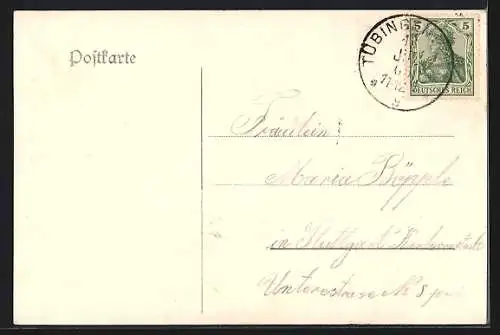 Postkarte
TÜBINGEN
5
DEUTSCHES REICH
Fräulein
Maria Böpple
in Stuttgart
Unterestrasse No 8